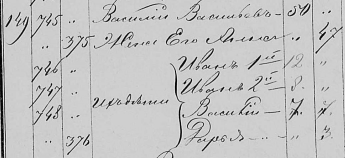 149 745 " Василий Васильевъ - 50 "
" 375 Жена Его Анна " 47
746 " Иванъ 1й 12 "
747 " ихъ дѣти Иванъ 2й 8 "
748 " Василий 7 "
" 376 Дарья " 3